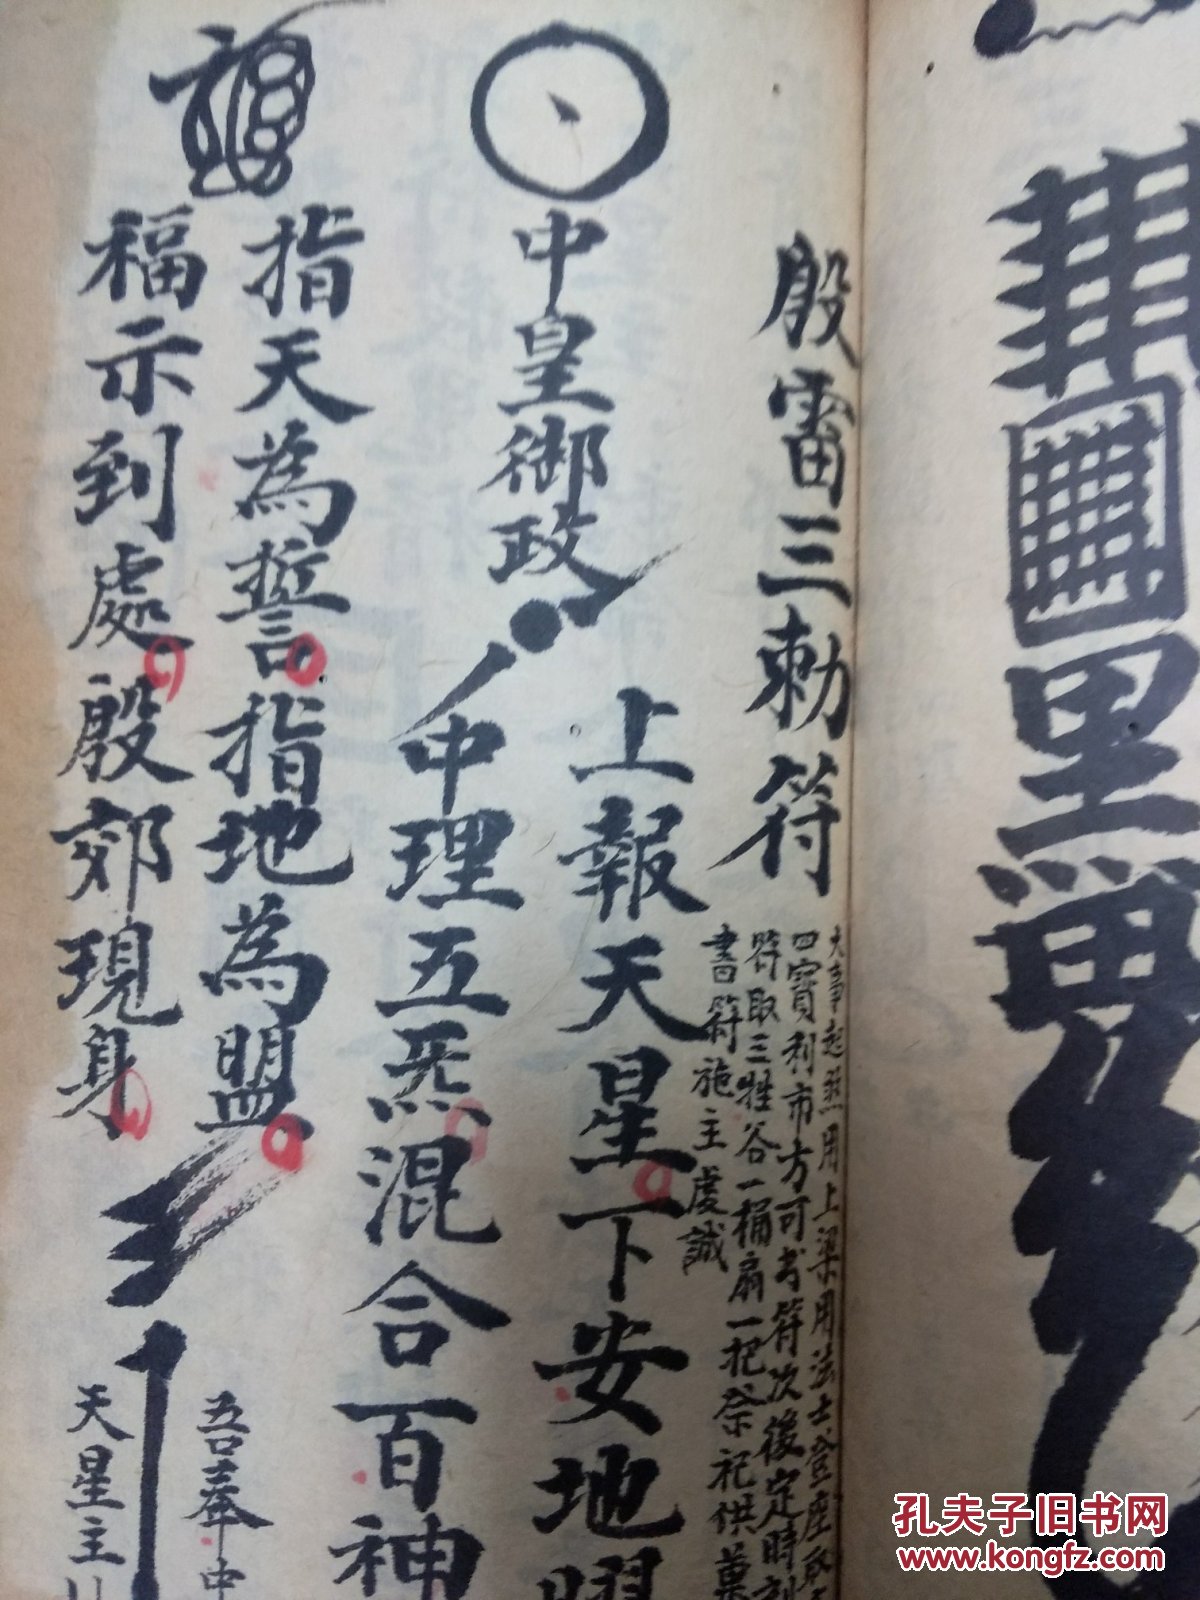 殷雷三勅符
大事起煞用上梁用法士登座
四寳利市方可书符次後定時刻
符取三牲谷一桶扇一把祭祀供菓
書符施主虔誠
中皇御政
上報天星下安地曜
中理五炁混合百神
指天為誓指地為盟
福示到處殷郊現身
吾奉中
天星主
孔夫子旧书网
www.kongfz.com